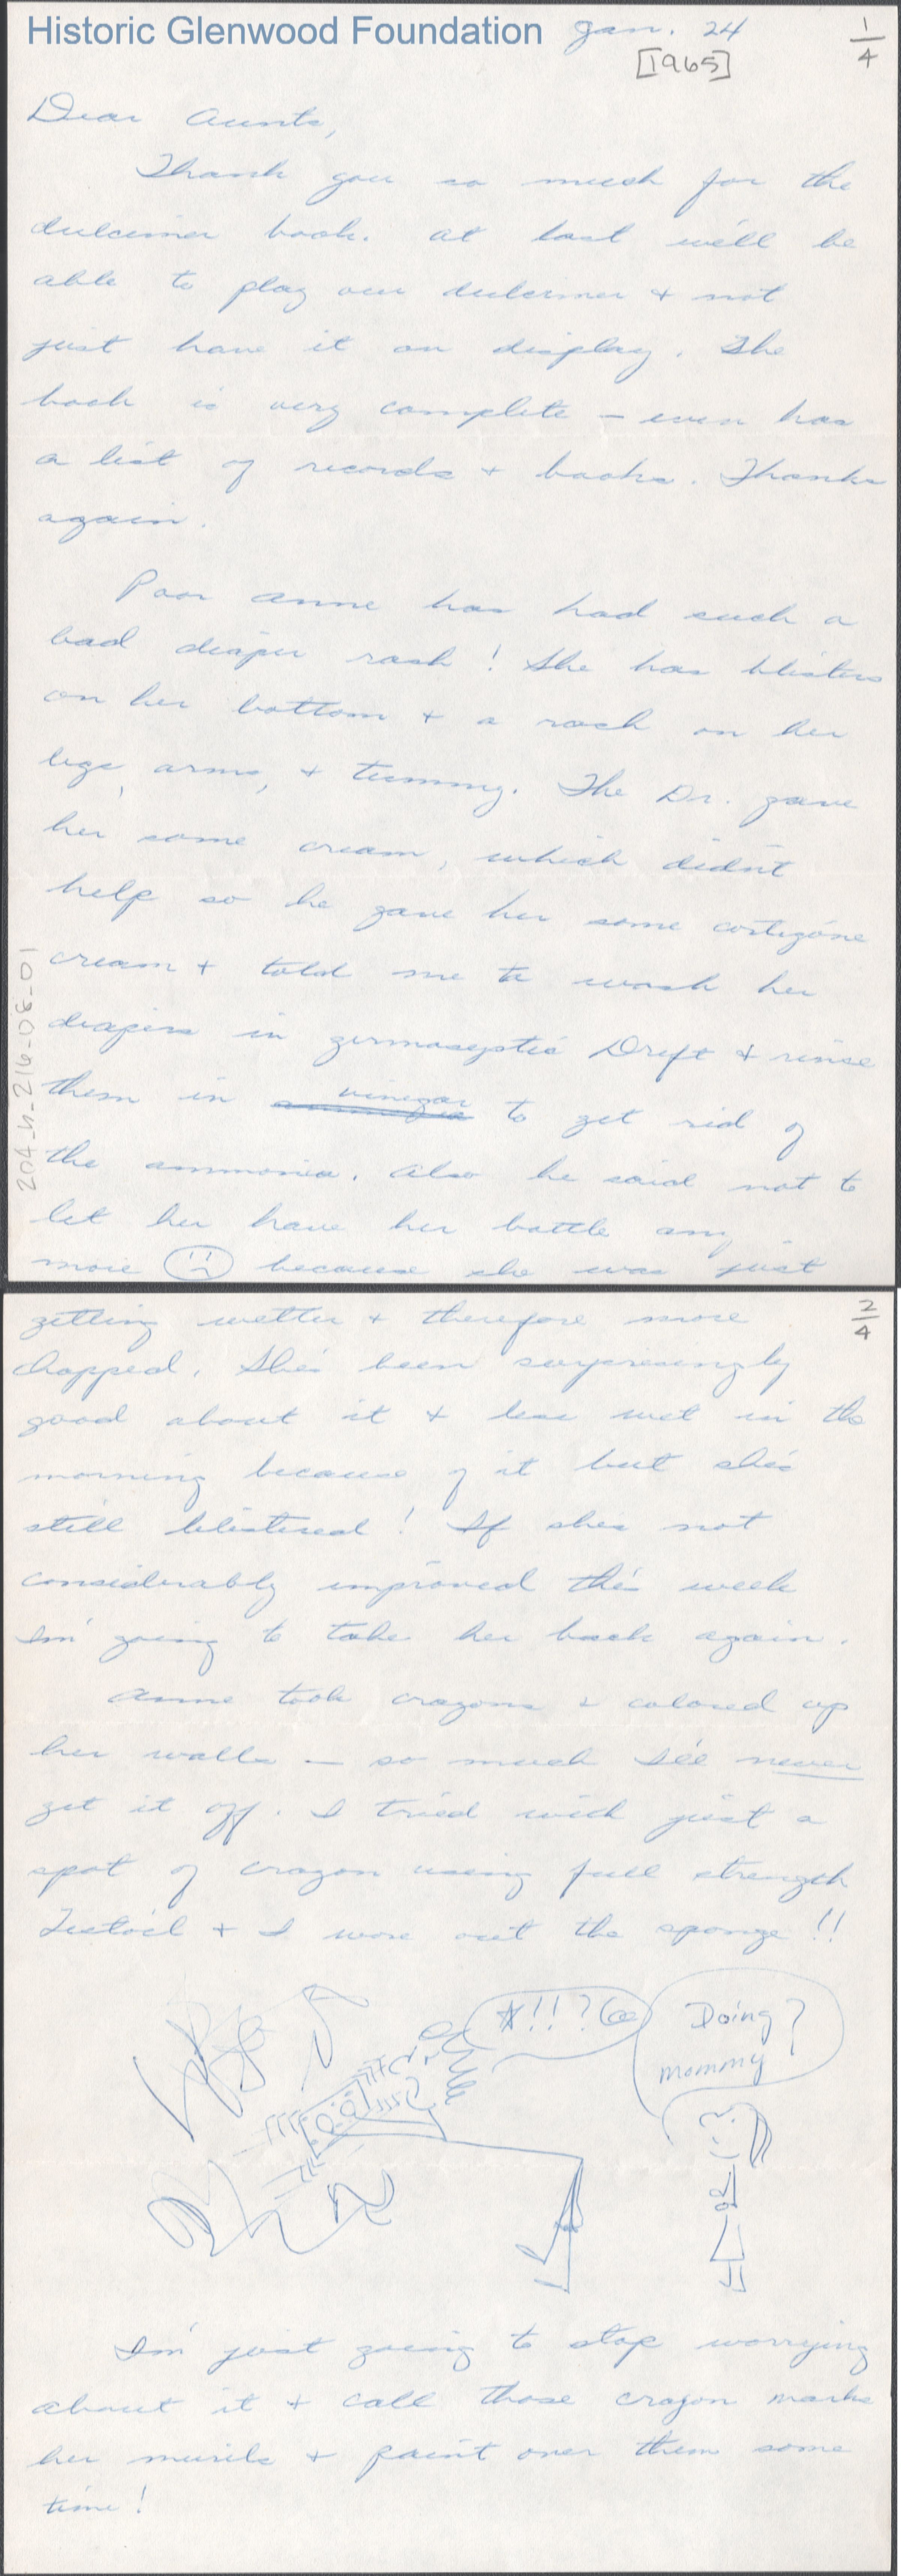 Historic Glenwood Foundation Jan. 24
[1965]
1/4
Dear Aunts,
Thank you so much for the
dulcimer book. At last we'll be
able to play our dulcimer + not
just have it on display. The
book is very complete – even has
a list of records + books. Thanks
again.
Poor Anne has had such a
bad diaper rash! She has blisters
on her bottom + a rash on her
legs, arms, + tummy. The Dr. gave
her some cream, which didn't
help so he gave her some cortizone
cream + told me to wash her
diapers in germaseptic Dreft + rinse
them in vinegar to get rid of
the ammonia. Also he said not to
let her have her bottle any
more because she was just
204-N-216-08-01
2/4
getting wetter + therefore more
chapped. She's been surprisingly
good about it + less wet in the
morning because of it but she's
still blistered! If she's not
considerably improved this week
I'm going to take her back again.
Anne took crayons & colored up
her walls – so much I'll never
get it off. I tried with just a
spot of crayon using full strength
Lestoil + I wore out the sponge!!
*!!?@
Doing?
Mommy
I'm just going to stop worrying
about it + call those crayon marks
her murils + paint over them some
time!